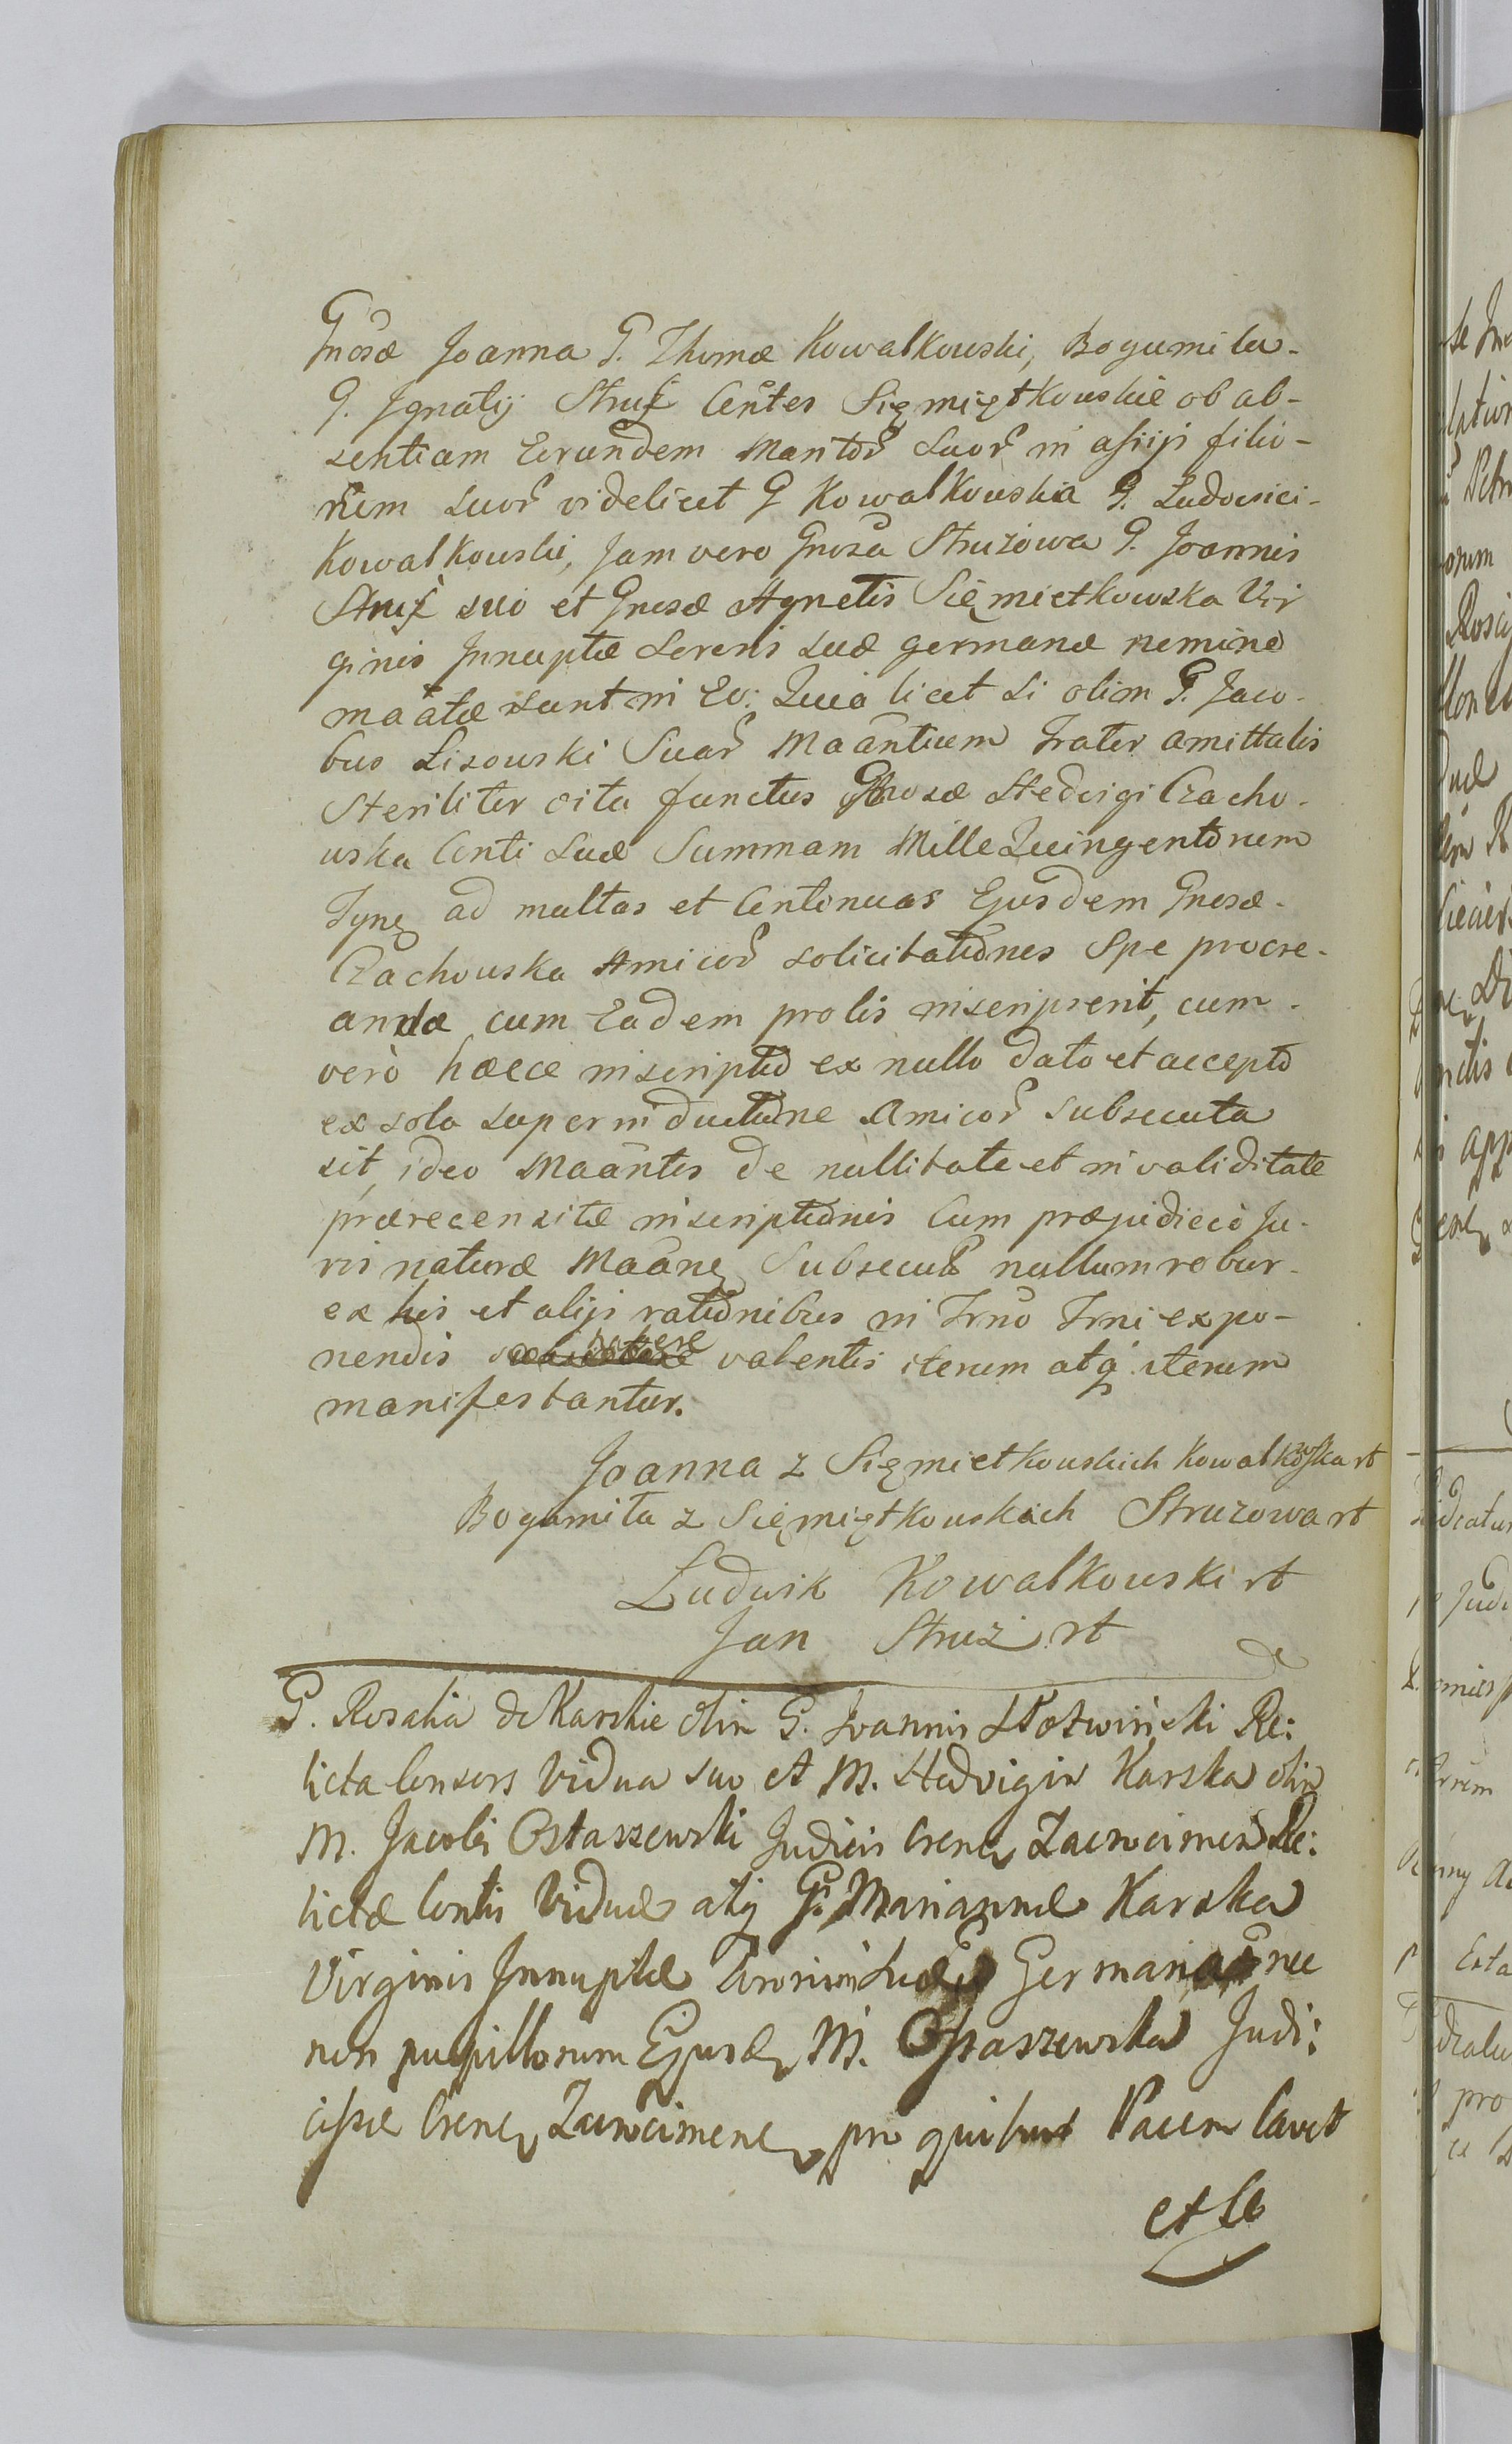 Gnosæ Joanna G. Thomæ Kowalkowski, Bogumila-
G. Ignatij Struż Cõntes Sięmiętkowskie ob ab-
sentiam Eorundem Maritor̃ suor̃ in assij filio-
rũm suor̃ videlicet G Kowalkowska G. Ludovici-
Kowalkowski, jam vero Gnosa Struzowa G. Joannis
Struż suo et Gnosæ Agnetis Sięmietkowska Vir
ginis Innuptæ Sororis suæ germanæ nomine
maãtæ sunt in Eo: Quia licet si olim G. Jaco-
bus Lisowski Suar̃ Maãntium Frater amittalis
Steriliter vita functus Gnosæ Hedvigi Czacho-
wska Conti Suæ Summam Mille Quingentorum
Fpnę ad multas et Contonuas Ejusdem Gnosæ-
Czachowska Amicor̃ solicitationes Spe procre-
andæ cum Eadem prolis inscripserit, cum-
verò hæcce inscriptio ex nullo dato et accepto
ex sola superinductione Amicor̃ subsecuta
sit, ideo Maãntes de nullitate et invaliditate
prærecensitæ inscriptionis Cum præjudicio Ju-
ris naturæ Maãnę Subsecutæ nullum robur-
ex his et alijs rationibus in Trno Trni expo-
nendis habere valentis iterum atq́ iterum
manifestantur.
Joanna z Sięmietkowskich Kowalkowska rt
Bogumiła z Sięmiętkowskich Struzowa rt
Ludwik Kowalkowski rt
Jan Struż rt
G. Rosalia de Karskie olim G. Joannis Słotwiński Re:
licta Consors Vidua suo et M. Hedvigis Karska olim
M. Jacobi Ostaszewski Judicis Crenę Zacrocimen Re:
lictæ Contis Viduæ atq́ G. Mariannæ Karska
Virginis Innuptæ Sororum Suar̃ Germanar̃ nec
non pupillorum Ejusdę M. Ostaszewska Judi:
cissæ Crenę Zacrocimenę pro quibus Pacem Cavet
et se